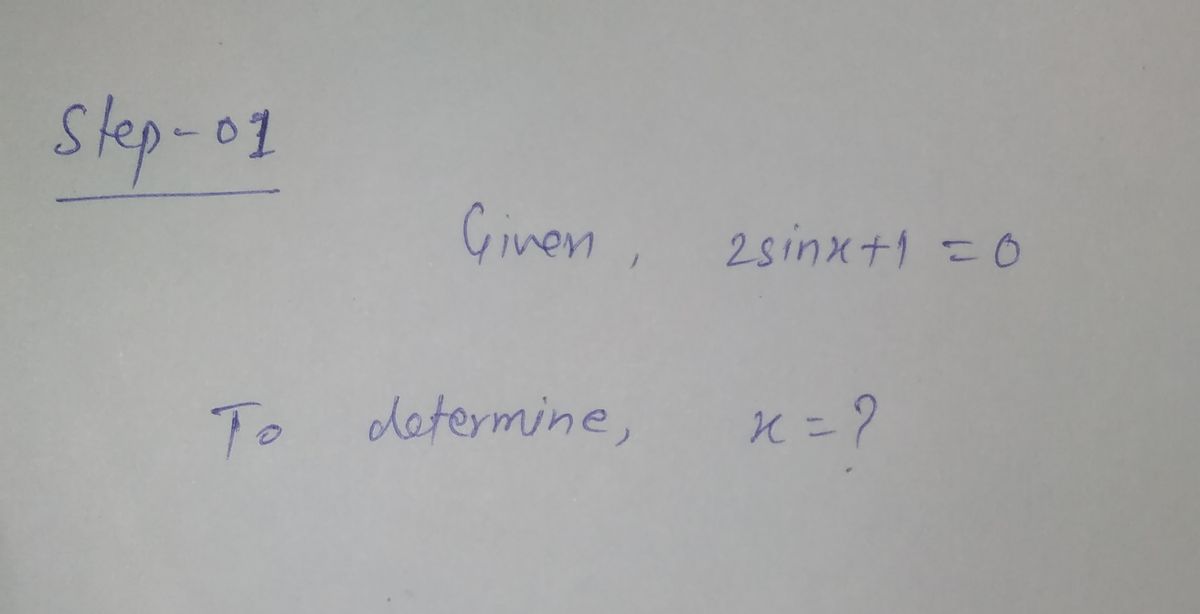 Step-01
Given, 2sinx+1 = 0
To determine, x = ?